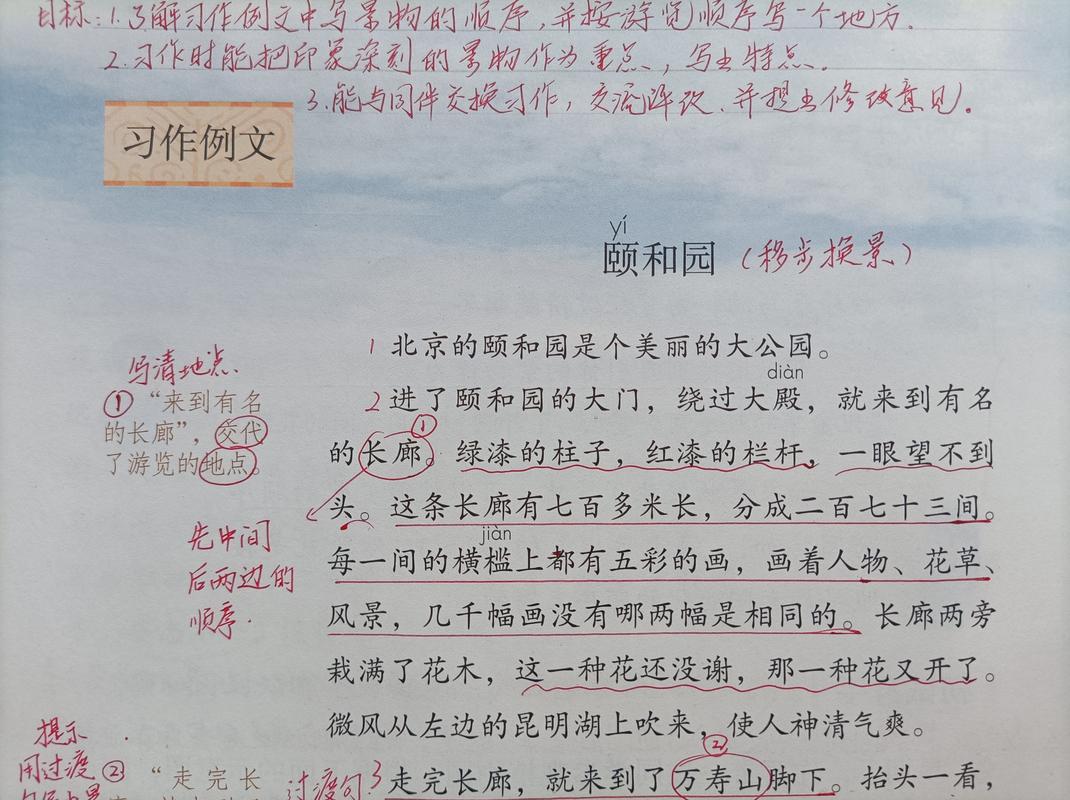 目标：1.了解习作例文中写景物的顺序，并按游览顺序写一个地方.
2.习作时能把印象深刻的景物作为重点，写出特点.
3.能与同伴交换习作，交流评改.并提出修改意见.
习作例文
yí
颐和园（移步换景）
1 北京的颐和园是个美丽的大公园。
diàn
2 进了颐和园的大门，绕过大殿，就来到有名
的长廊。绿漆的柱子，红漆的栏杆，一眼望不到
头。这条长廊有七百多米长，分成二百七十三间。
jiàn
每一间的横槛上都有五彩的画，画着人物、花草、
风景，几千幅画没有哪两幅是相同的。长廊两旁
栽满了花木，这一种花还没谢，那一种花又开了。
微风从左边的昆明湖上吹来，使人神清气爽。
3 走完长廊，就来到了万寿山脚下。抬头一看，
①
②
写清地点.
① “来到有名
的长廊”，交代
了游览的地点。
先中间
后两边的
顺序.
提示
用过渡 ② “走完长
过渡句: